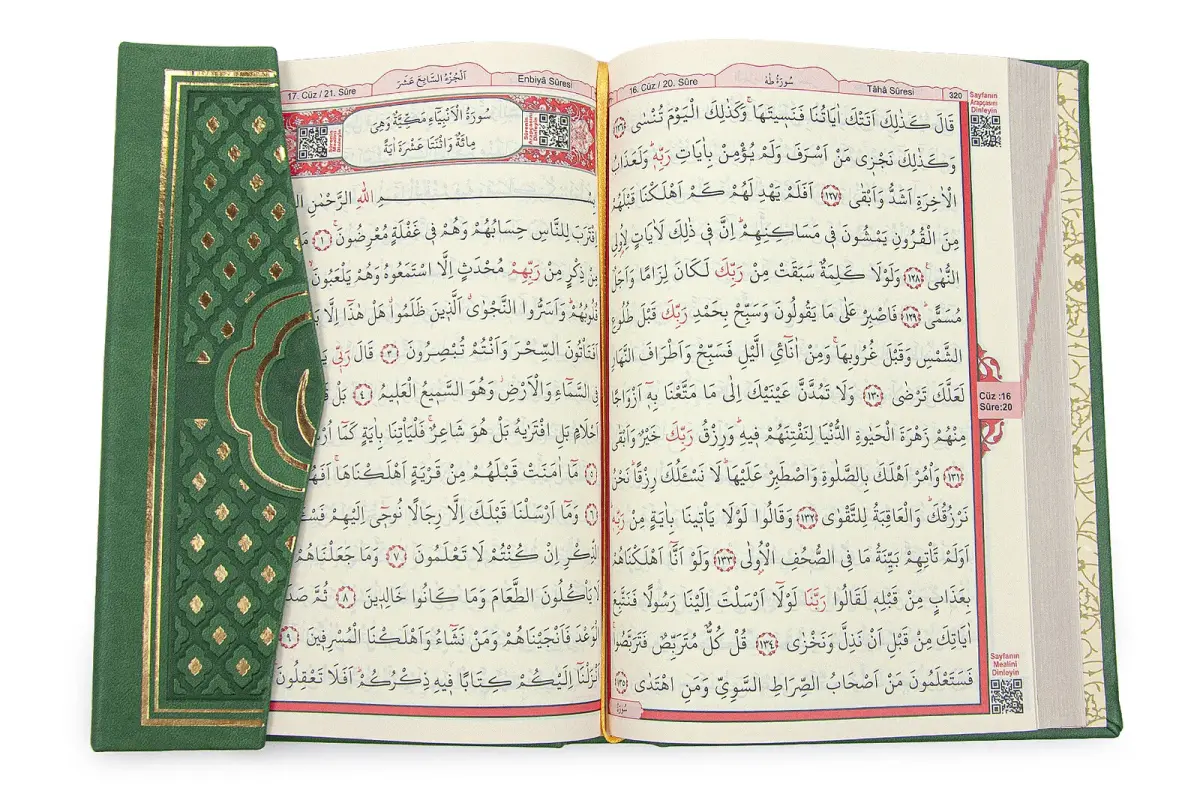 16. Cüz / 20. Sûre
سُورَةُ طٰهٰ
Tâhâ Sûresi
320
Sayfanın
Arapçasını
Dinleyin
قَالَ كَذٰلِكَ اَتَتْكَ اٰيَاتُنَا فَنَسٖيتَهَاۚ وَكَذٰلِكَ الْيَوْمَ تُنْسٰى ﴿١٢٦﴾
وَكَذٰلِكَ نَجْزٖى مَنْ اَسْرَفَ وَلَمْ يُؤْمِنْ بِاٰيَاتِ رَبِّهٖۜ وَلَعَذَابُ
الْاٰخِرَةِ اَشَدُّ وَاَبْقٰى ﴿١٢٧﴾ اَفَلَمْ يَهْدِ لَهُمْ كَمْ اَهْلَكْنَا قَبْلَهُمْ
مِنَ الْقُرُونِ يَمْشُونَ فٖى مَسَاكِنِهِمْۜ اِنَّ فٖى ذٰلِكَ لَاٰيَاتٍ لِاُولِى
النُّهٰىۚ ﴿١٢٨﴾ وَلَوْلَا كَلِمَةٌ سَبَقَتْ مِنْ رَبِّكَ لَكَانَ لِزَامًا وَاَجَلٌ
مُسَمًّىۜ ﴿١٢٩﴾ فَاصْبِرْ عَلٰى مَا يَقُولُونَ وَسَبِّحْ بِحَمْدِ رَبِّكَ قَبْلَ طُلُوعِ
الشَّمْسِ وَقَبْلَ غُرُوبِهَاۚ وَمِنْ اٰنَائِ الَّيْلِ فَسَبِّحْ وَاَطْرَافَ النَّهَارِ
لَعَلَّكَ تَرْضٰى ﴿١٣٠﴾ وَلَا تَمُدَّنَّ عَيْنَيْكَ اِلٰى مَا مَتَّعْنَا بِهٖٓ اَزْوَاجًا
Cüz :16
Sûre:20
مِنْهُمْ زَهْرَةَ الْحَيٰوةِ الدُّنْيَا لِنَفْتِنَهُمْ فٖيهِۜ وَرِزْقُ رَبِّكَ خَيْرٌ وَاَبْقٰى
﴿١٣١﴾ وَأْمُرْ اَهْلَكَ بِالصَّلٰوةِ وَاصْطَبِرْ عَلَيْهَاۜ لَا نَسْـَٔلُكَ رِزْقًاۜ نَحْنُ
نَرْزُقُكَۜ وَالْعَاقِبَةُ لِلتَّقْوٰى ﴿١٣٢﴾ وَقَالُوا لَوْلَا يَأْتٖينَا بِاٰيَةٍ مِنْ رَبِّهٖۜ
اَوَلَمْ تَأْتِهِمْ بَيِّنَةُ مَا فِى الصُّحُفِ الْاُولٰى ﴿١٣٣﴾ وَلَوْ اَنَّٓا اَهْلَكْنَاهُمْ
بِعَذَابٍ مِنْ قَبْلِهٖ لَقَالُوا رَبَّنَا لَوْلَٓا اَرْسَلْتَ اِلَيْنَا رَسُولًا فَنَتَّبِعَ
اٰيَاتِكَ مِنْ قَبْلِ اَنْ نَذِلَّ وَنَخْزٰى ﴿١٣٤﴾ قُلْ كُلٌّ مُتَرَبِّصٌ فَتَرَبَّصُواۚ
فَسَتَعْلَمُونَ مَنْ اَصْحَابُ الصِّرَاطِ السَّوِىِّ وَمَنِ اهْتَدٰى ﴿١٣٥﴾
Sayfanın
Mealini
Dinleyin
17. Cüz / 21. Sûre
اَلْجُزْءُ السَّابِعَ عَشَرَ
Enbiyâ Sûresi
سُورَةُ الْاَنْبِيَٓاءِ مَكِّيَّةٌ وَهِىَ
مِائَةٌ وَاثْنَتَا عَشْرَةَ اٰيَةً
اللّٰهِ الرَّحْمٰنِ
اِقْتَرَبَ لِلنَّاسِ حِسَابُهُمْ وَهُمْ فٖى غَفْلَةٍ مُعْرِضُونَۚ ﴿١﴾
مِنْ ذِكْرٍ مِنْ رَبِّهِمْ مُحْدَثٍ اِلَّا اسْتَمَعُوهُ وَهُمْ يَلْعَبُونَ
قُلُوبُهُمْۜ وَاَسَرُّوا النَّجْوٰىۗ اَلَّذٖينَ ظَلَمُواۗ هَلْ هٰذَٓا اِلَّا
اَفَتَأْتُونَ السِّحْرَ وَاَنْتُمْ تُبْصِرُونَ ﴿٣﴾ قَالَ رَبّٖى
فِى السَّمَٓاءِ وَالْاَرْضِۘ وَهُوَ السَّمٖيعُ الْعَلٖيمُ ﴿٤﴾ بَلْ
اَحْلَامٍ بَلِ افْتَرٰيهُ بَلْ هُوَ شَاعِرٌۚ فَلْيَأْتِنَا بِاٰيَةٍ كَمَٓا
﴿٥﴾ مَٓا اٰمَنَتْ قَبْلَهُمْ مِنْ قَرْيَةٍ اَهْلَكْنَاهَاۚ اَفَهُمْ
﴿٦﴾ وَمَٓا اَرْسَلْنَا قَبْلَكَ اِلَّا رِجَالًا نُوحٖٓى اِلَيْهِمْ
الذِّكْرِ اِنْ كُنْتُمْ لَا تَعْلَمُونَ ﴿٧﴾ وَمَا جَعَلْنَاهُمْ
لَا يَأْكُلُونَ الطَّعَامَ وَمَا كَانُوا خَالِدٖينَ ﴿٨﴾ ثُمَّ
الْوَعْدَ فَاَنْجَيْنَاهُمْ وَمَنْ نَشَٓاءُ وَاَهْلَكْنَا الْمُسْرِفٖينَ ﴿٩﴾
اَنْزَلْنَٓا اِلَيْكُمْ كِتَابًا فٖيهِ ذِكْرُكُمْۜ اَفَلَا تَعْقِلُونَ